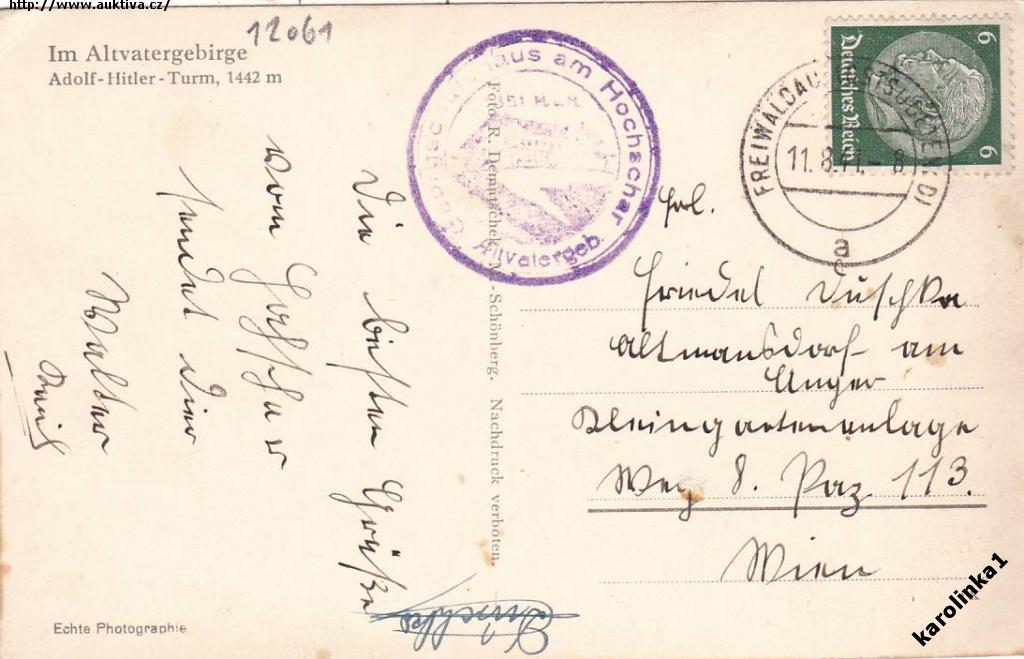 http://www.auktiva.cz/
12061
Im Altvatergebirge
Adolf-Hitler-Turm, 1442 m
haus am Hochschar
Altvatergeb.
FREIWALDAU
11.8.41.- 8
a
Deutsches Reich
6
6
Foto R. Dematschek, M.-Schönberg. Nachdruck verboten.
Frl.
Friedel Duschka
Altmansdorf am
Anger
Kleingartenanlage
Weg 8. Paz 113.
Wien
Die besten Grüße
vom Hochschar
sendet Dir
Walter
Echte Photographie
karolinka1